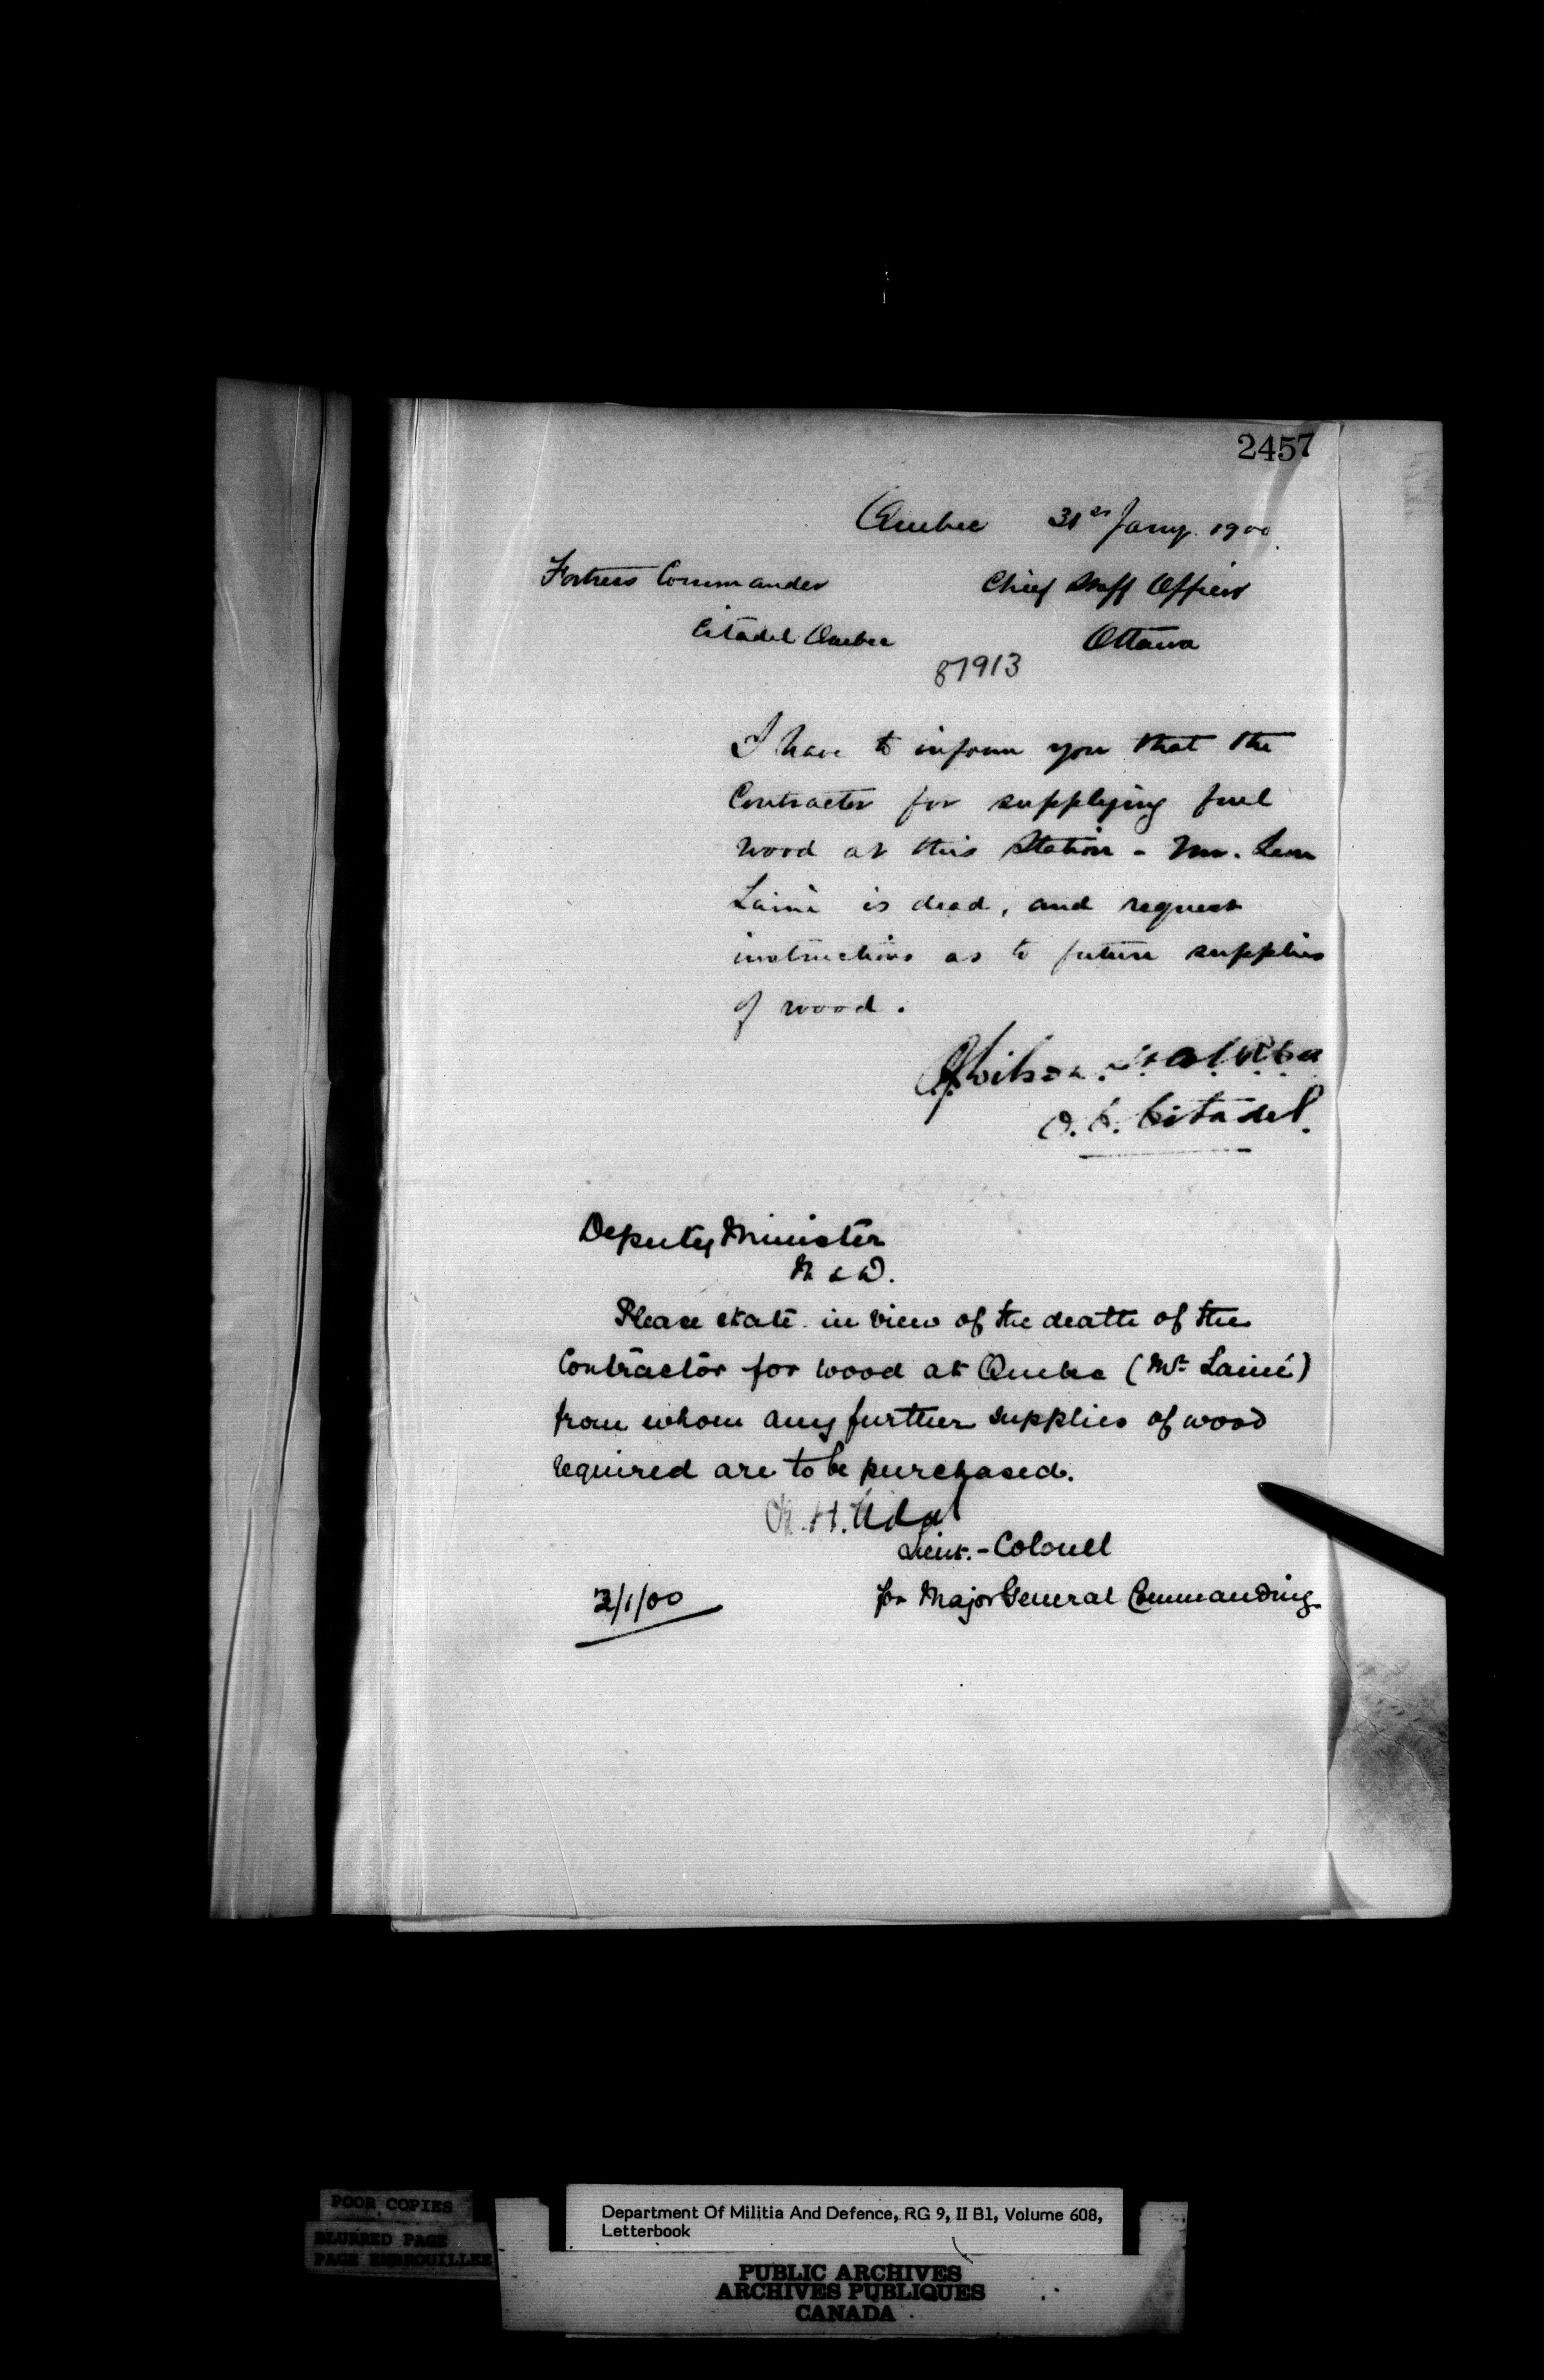 2457
Quebec 31st Jany. 1900.
Fortress Commander Chief Staff Officer
Citadel Quebec Ottawa
87913
I have to inform you that the
Contractor for supplying fuel
wood at this Station - Mr. Leon
Lainé is dead, and request
instructions as to future supplies
of wood.
Wilson
O.C. Citadel.
Deputy Minister
M & D.
Please state in view of the death of the
Contractor for wood at Quebec (Mr Lainé)
from whom any further supplies of wood
required are to be purchased.
H.
Lieut.-Colonel
for Major General Commanding
/1/00
POOR COPIES
BLURRED PAGE
PAGE EMBROUILLEE
Department Of Militia And Defence, RG 9, II B1, Volume 608,
Letterbook
PUBLIC ARCHIVES
ARCHIVES PUBLIQUES
CANADA